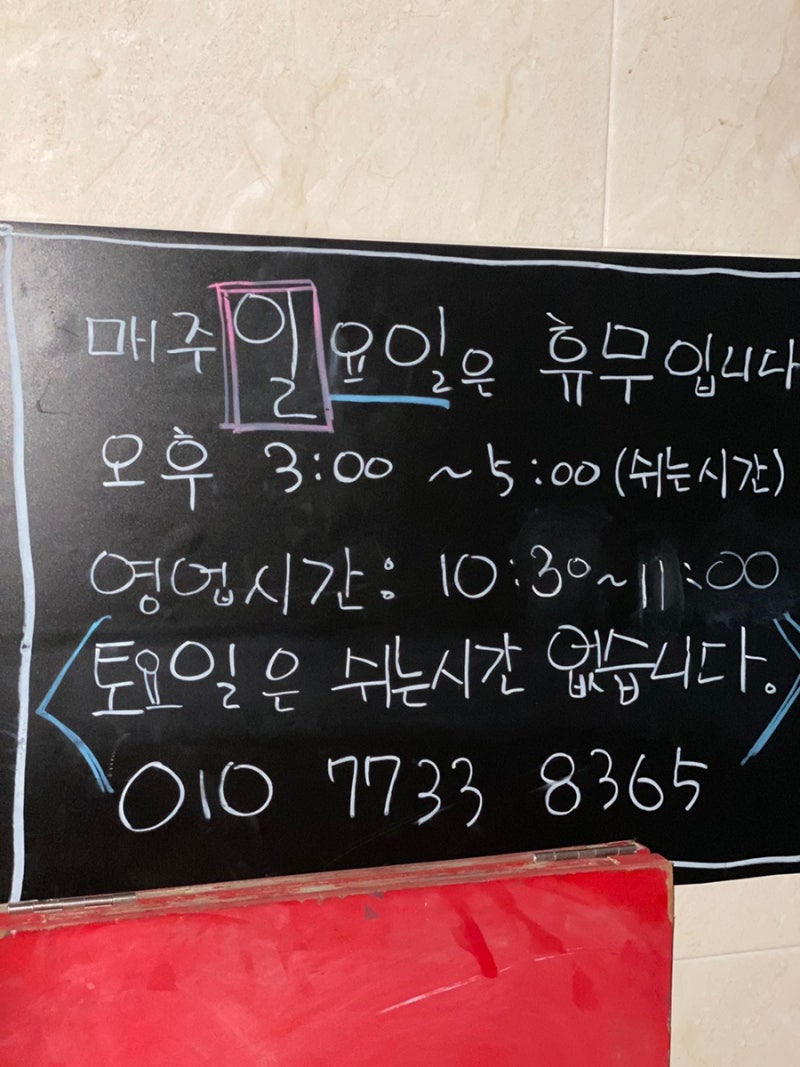 매주 일요일은 휴무입니다
오후 3:00 ~5:00 (쉬는시간)
영업시간: 10:30~11:00
토요일은 쉬는시간 없습니다.
010 7733 8365